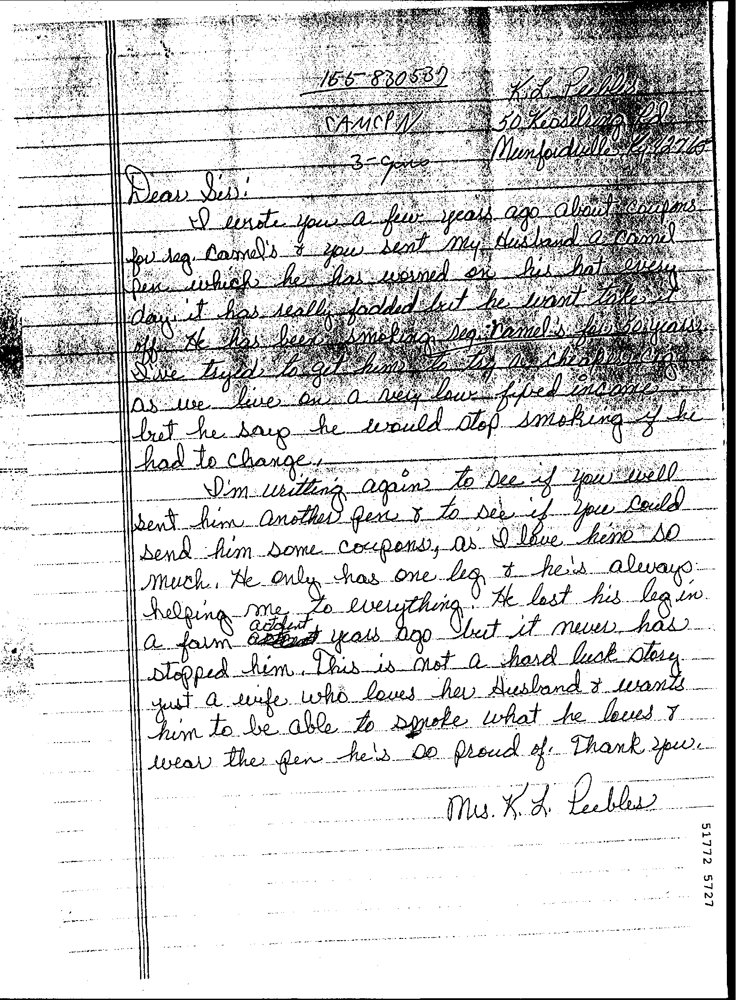 155-830537
K.L. Peebles
CAMCPN
50 Kesselring Rd
3-
Munfordville, Ky. 42765
Dear Sis:
I wrote you a few years ago about coupons
for reg. Camel's & you sent my Husband a camel
pen which he has worned on his hat every
day. it has really fadded but he want take it
off. He has been smoking reg. Camel's for 50 years.
I've tryed to get him to try a cheaper cig
as we live on a very low fixed income
but he says he would stop smoking if he
had to change.
I'm writting again to see if you well
sent him another pen & to see if you could
send him some coupons, as I love him so
much. He only has one leg & he's always
helping me to everything. He lost his leg in
a farm actdent years ago but it never has
stopped him. This is not a hard luck story
just a wife who loves her Husband & wants
him to be able to smoke what he loves &
wear the pen he's so proud of. Thank you.
Mrs. K. L. Peebles
51772 5727